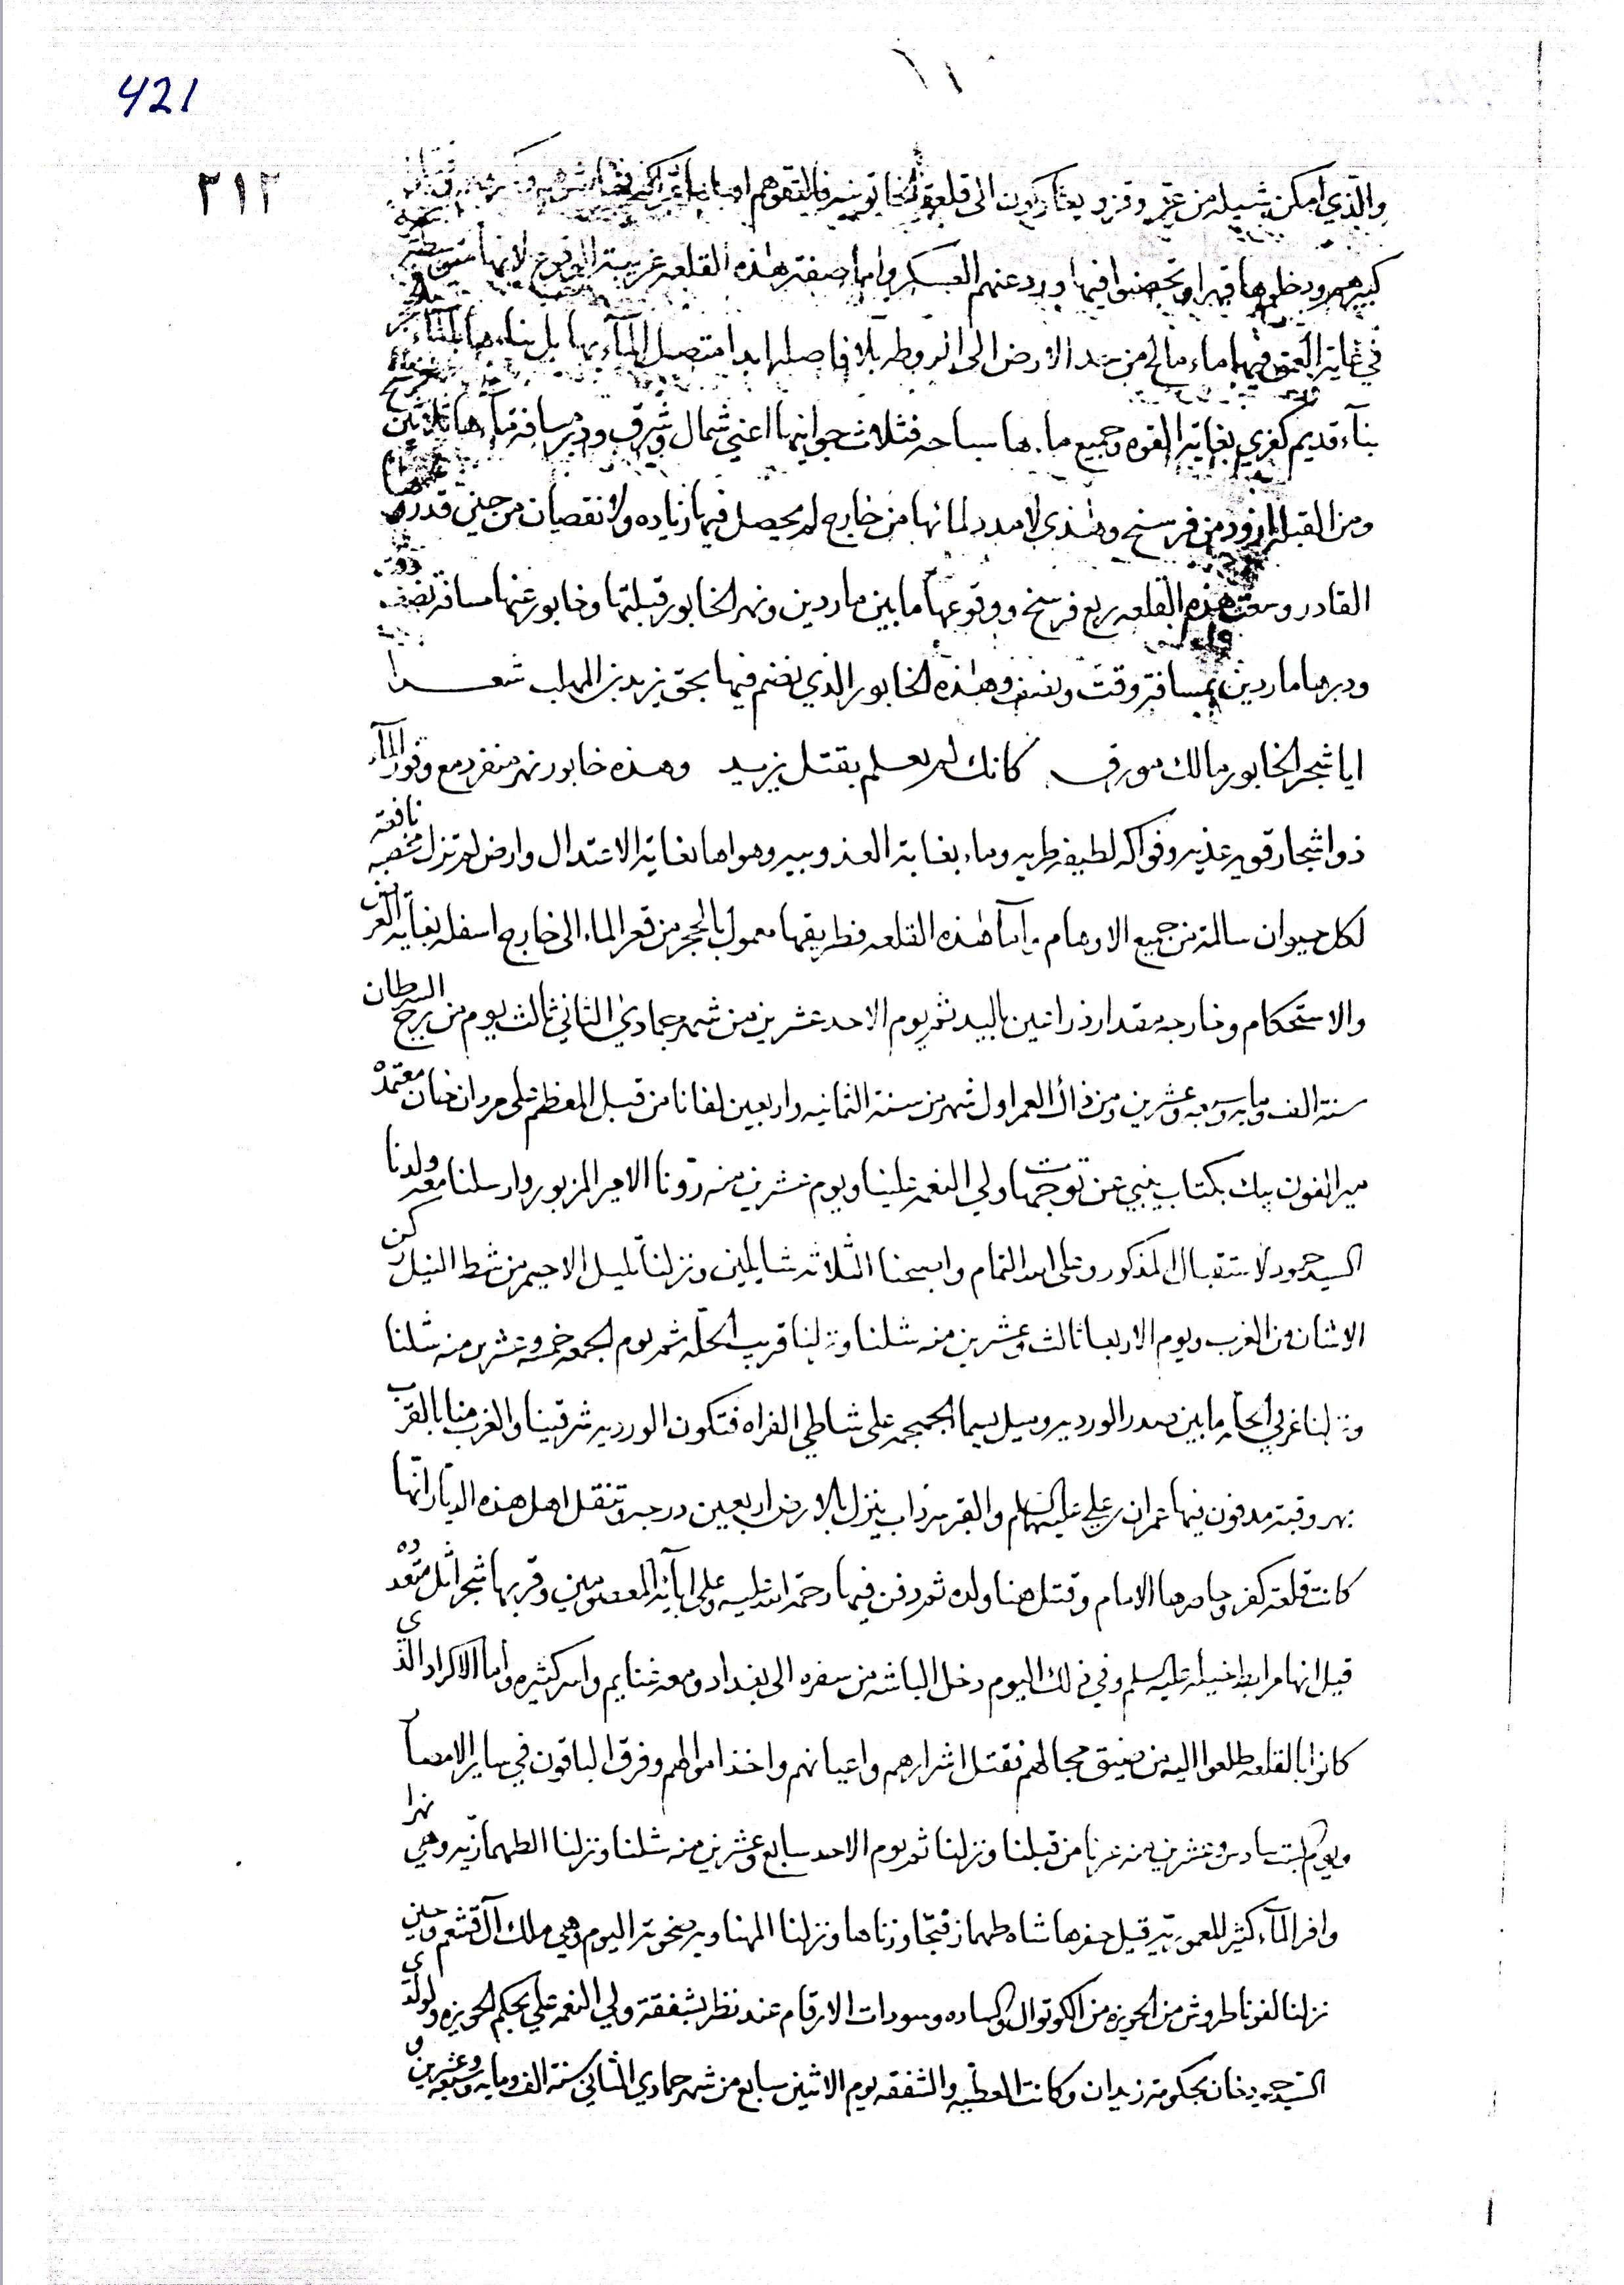 421
٣١٢
والذي امكن شيله من عز وقز و يعاركون الى قلعة فالتقوهم
كبيرهم ودخلوها قهرا وتحصنوا فيها ورد عنهم العسكر واما صفة هذه القلعه غريبة الوقوع لانها متوسطه
في غاية العمق فيها ماء مالح من حد الارض الى الروطه بلا فاصله ابدا متصل المآء بها بل بناءها بالمآء
بنآء قديم كفري بغاية القوه وجميع ماءها سباحه فثلاث جوانبها اعني شمال وشرق ودبر مسافة مآءها ثلاثين
ومن القبله ازود من فرسخ وهذي لا مدد لمائها من خارج لم يحصل فيها زياده ولا نقصان من حين قدرة
القادر وسعت هذه القلعه ربع فرسخ ووقوعها ما بين ماردين ونهر الخابور قبلتها وخابور عنها مسافة نصف وقت
ودبرها ماردين بمسافة وقت ونصف وهذه الخابور الذي نغنم فيها بحق يزيد بن المهلب شعـــرا
ايا شجر الخابور مالك مورق كانك لم تعلم بقتل يزيد وهذه خابور نهر منفرد مع وفور المآء
ذو اشجار قويه عذيه وفواكه لطيفه طريه وماء بغاية العذوبيه وهواها بغاية الاعتدال وارض لم تزل مخصبه نافعة
لكل حيوان سالمة من جميع الاوهام واما هذه القلعه فطريقها معمول بالحجر من قعر الماء الى خارج اسفله بغاية العرض
والاستحكام وخارجه مقدار ذراعين باليد ثم يوم الاحد عشرين من شهر جمادي الثاني ثالث يوم من برج السرطان
سنة الف ومايه وسبعه وعشرين ومن ذاك العمر اول شهر من سنة الثمانيه واربعين لفانا من قبل المعظم علي مردان خان معتمده
ميرالفون بيك بكتاب ينبي عن توجهات ولي النعمه علينا ويوم عشرين منه ردونا الامير المزبور وارسلنا معه ولدنا
السيد حمود لاستقبال المذكور وعلى الله التمام واصبحنا الثلاثه شايلين ونزلنا تليل الاحيمر من شط النيل ركن
الاثنان من الغرب ويوم الاربعا ثالث وعشرين منه شلنا ونزلنا قريب الحلّه ثم يوم الجمعه خمسه وعشرين منه شلنا
ونزلنا غربي الحلّه ما بين صدر الورديه وسيل يسما الجمجمه على شاطي الفراه فتكون الورديه شرقينا والغرب منا بالقرب
بهر وقبة مدفون فيها عمران بن علي عليهما السلام والقبر سرداب ينزل بالارض اربعين درجه وتنقل اهل هذه الديار انها
كانت قلعة كفر وحاصرها الامام وقتل هنا ولده ثم دفن فيها رحمة الله عليه وعلى ابآئه المعصومين وقربها شجر اثل متعدده
قيل انها مرابط خيله عليه السلم وفي ذلك اليوم دخل الباشه من سفره الى بغداد ومعه غنايم واسر كثيره واما الاكراد الذي
كانوا بالقلعه طلعوا اليه من ضيق مجالهم فقتل اشرارهم واعيانهم واخذ اموالهم وفرق الباقون في ساير الامصار
ويوم السبت سادس وعشرين منه عزبا من قبلنا ونزلنا ثم يوم الاحد سابع وعشرين منه شلنا ونزلنا الطهمازيه وهي نهرا
وافر المآء كثير المعموريه قيل حفرها شاه طهماز فتجاوزناها ونزلنا المهناويه ضحوة اليوم وهي ملك آل قشعم وحين
نزلنا لفونا طروش من الحويزه من الكوتوال والساده وسودات الارقام عند نظر بشفقة ولي النعمه علي بحكم الحويزه ولولدي
السيد حميد خان بحكومة زيدان وكانت العطيه والشفقه يوم الاثنين سابع من شهر جمادي الثاني سنة الف ومايه وسبعه وعشرين و